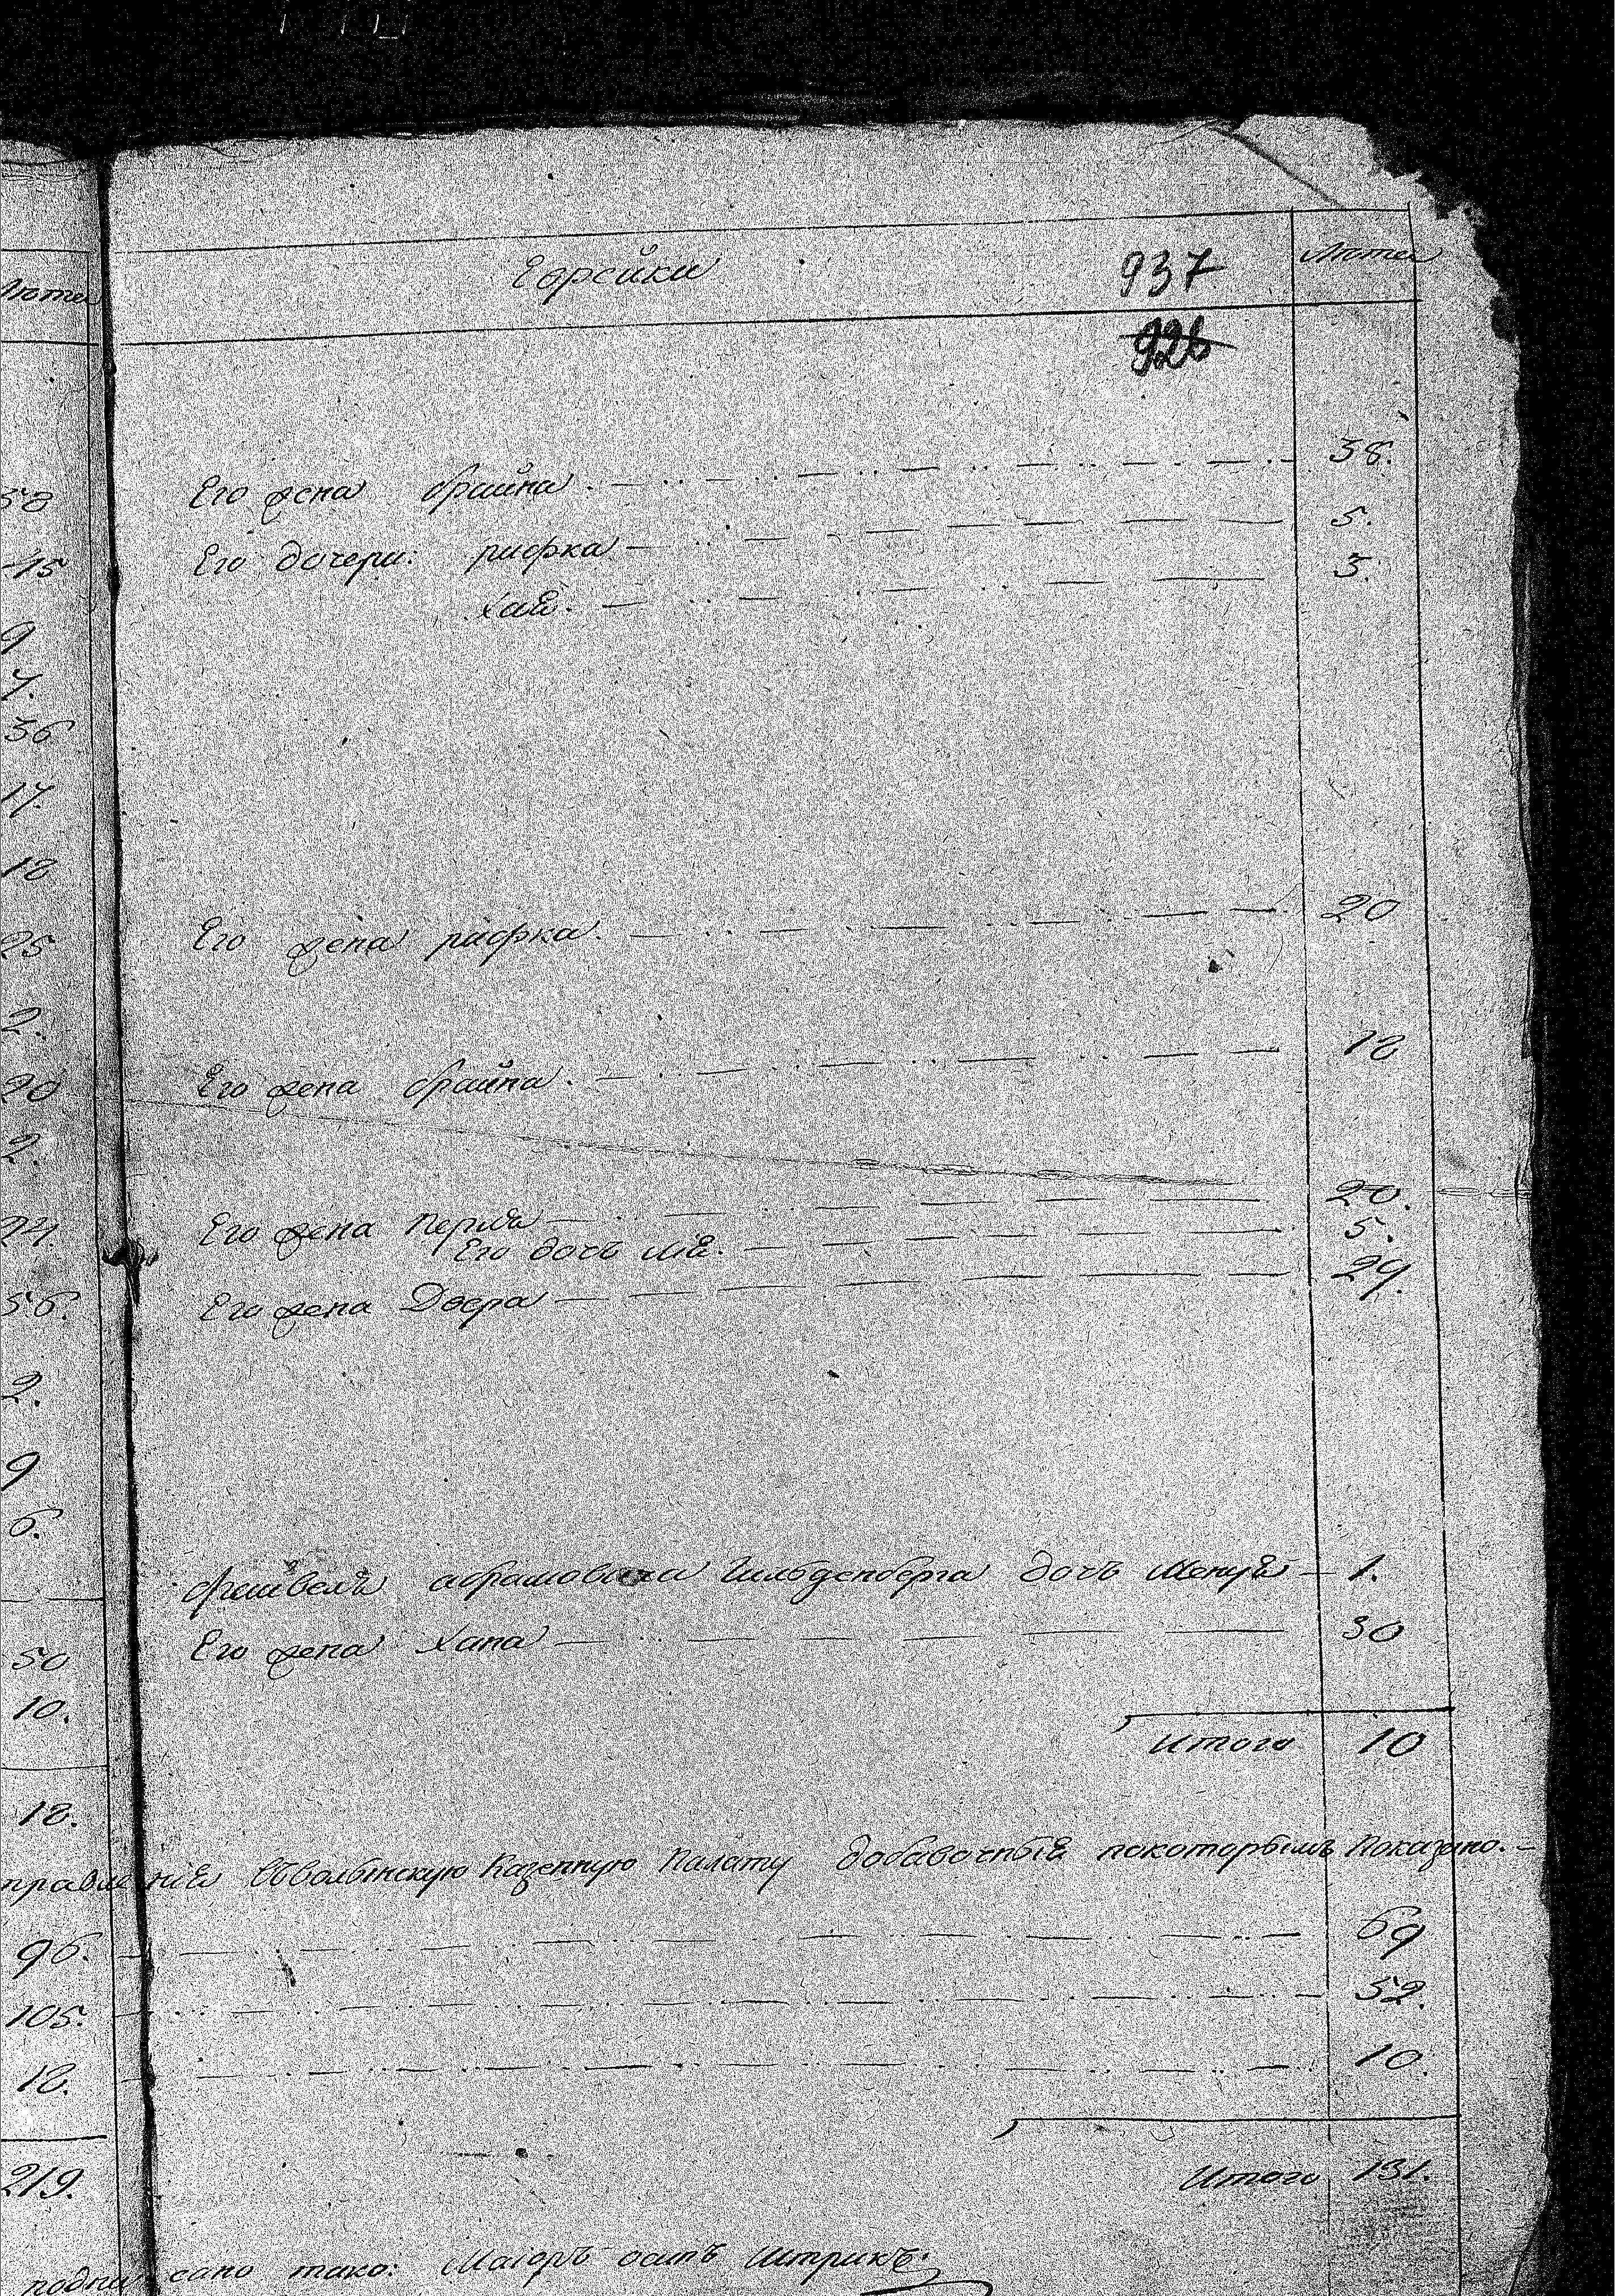 Лѣта
Еврейки 937 Лѣта
926
58
Его жена Брайна 38.
15
Его дочери: Рифка 5.
9
Хаѣ. 3.
7.
36
17.
18
25
Его жена Рифка. 20
2.
20
Его жена Брайна. 18
2.
24.
Его жена Перля 20.
Его дочь Лiѣ. 5.
56.
Его жена Двера 29.
2.
9
6.
Фейвелъ Абрамовича Гильденберга дочь Менуѣ 1.
50
Его жена Хана 30
10.
Итого 10
18.
правленiѣ Въволынскую Казенную Палату добавочныiѣ покоторымъ Показано.
96. 69
105. 52.
18. 10
219. Итого 131.
подписано тако: Маiоръ Штрикъ.